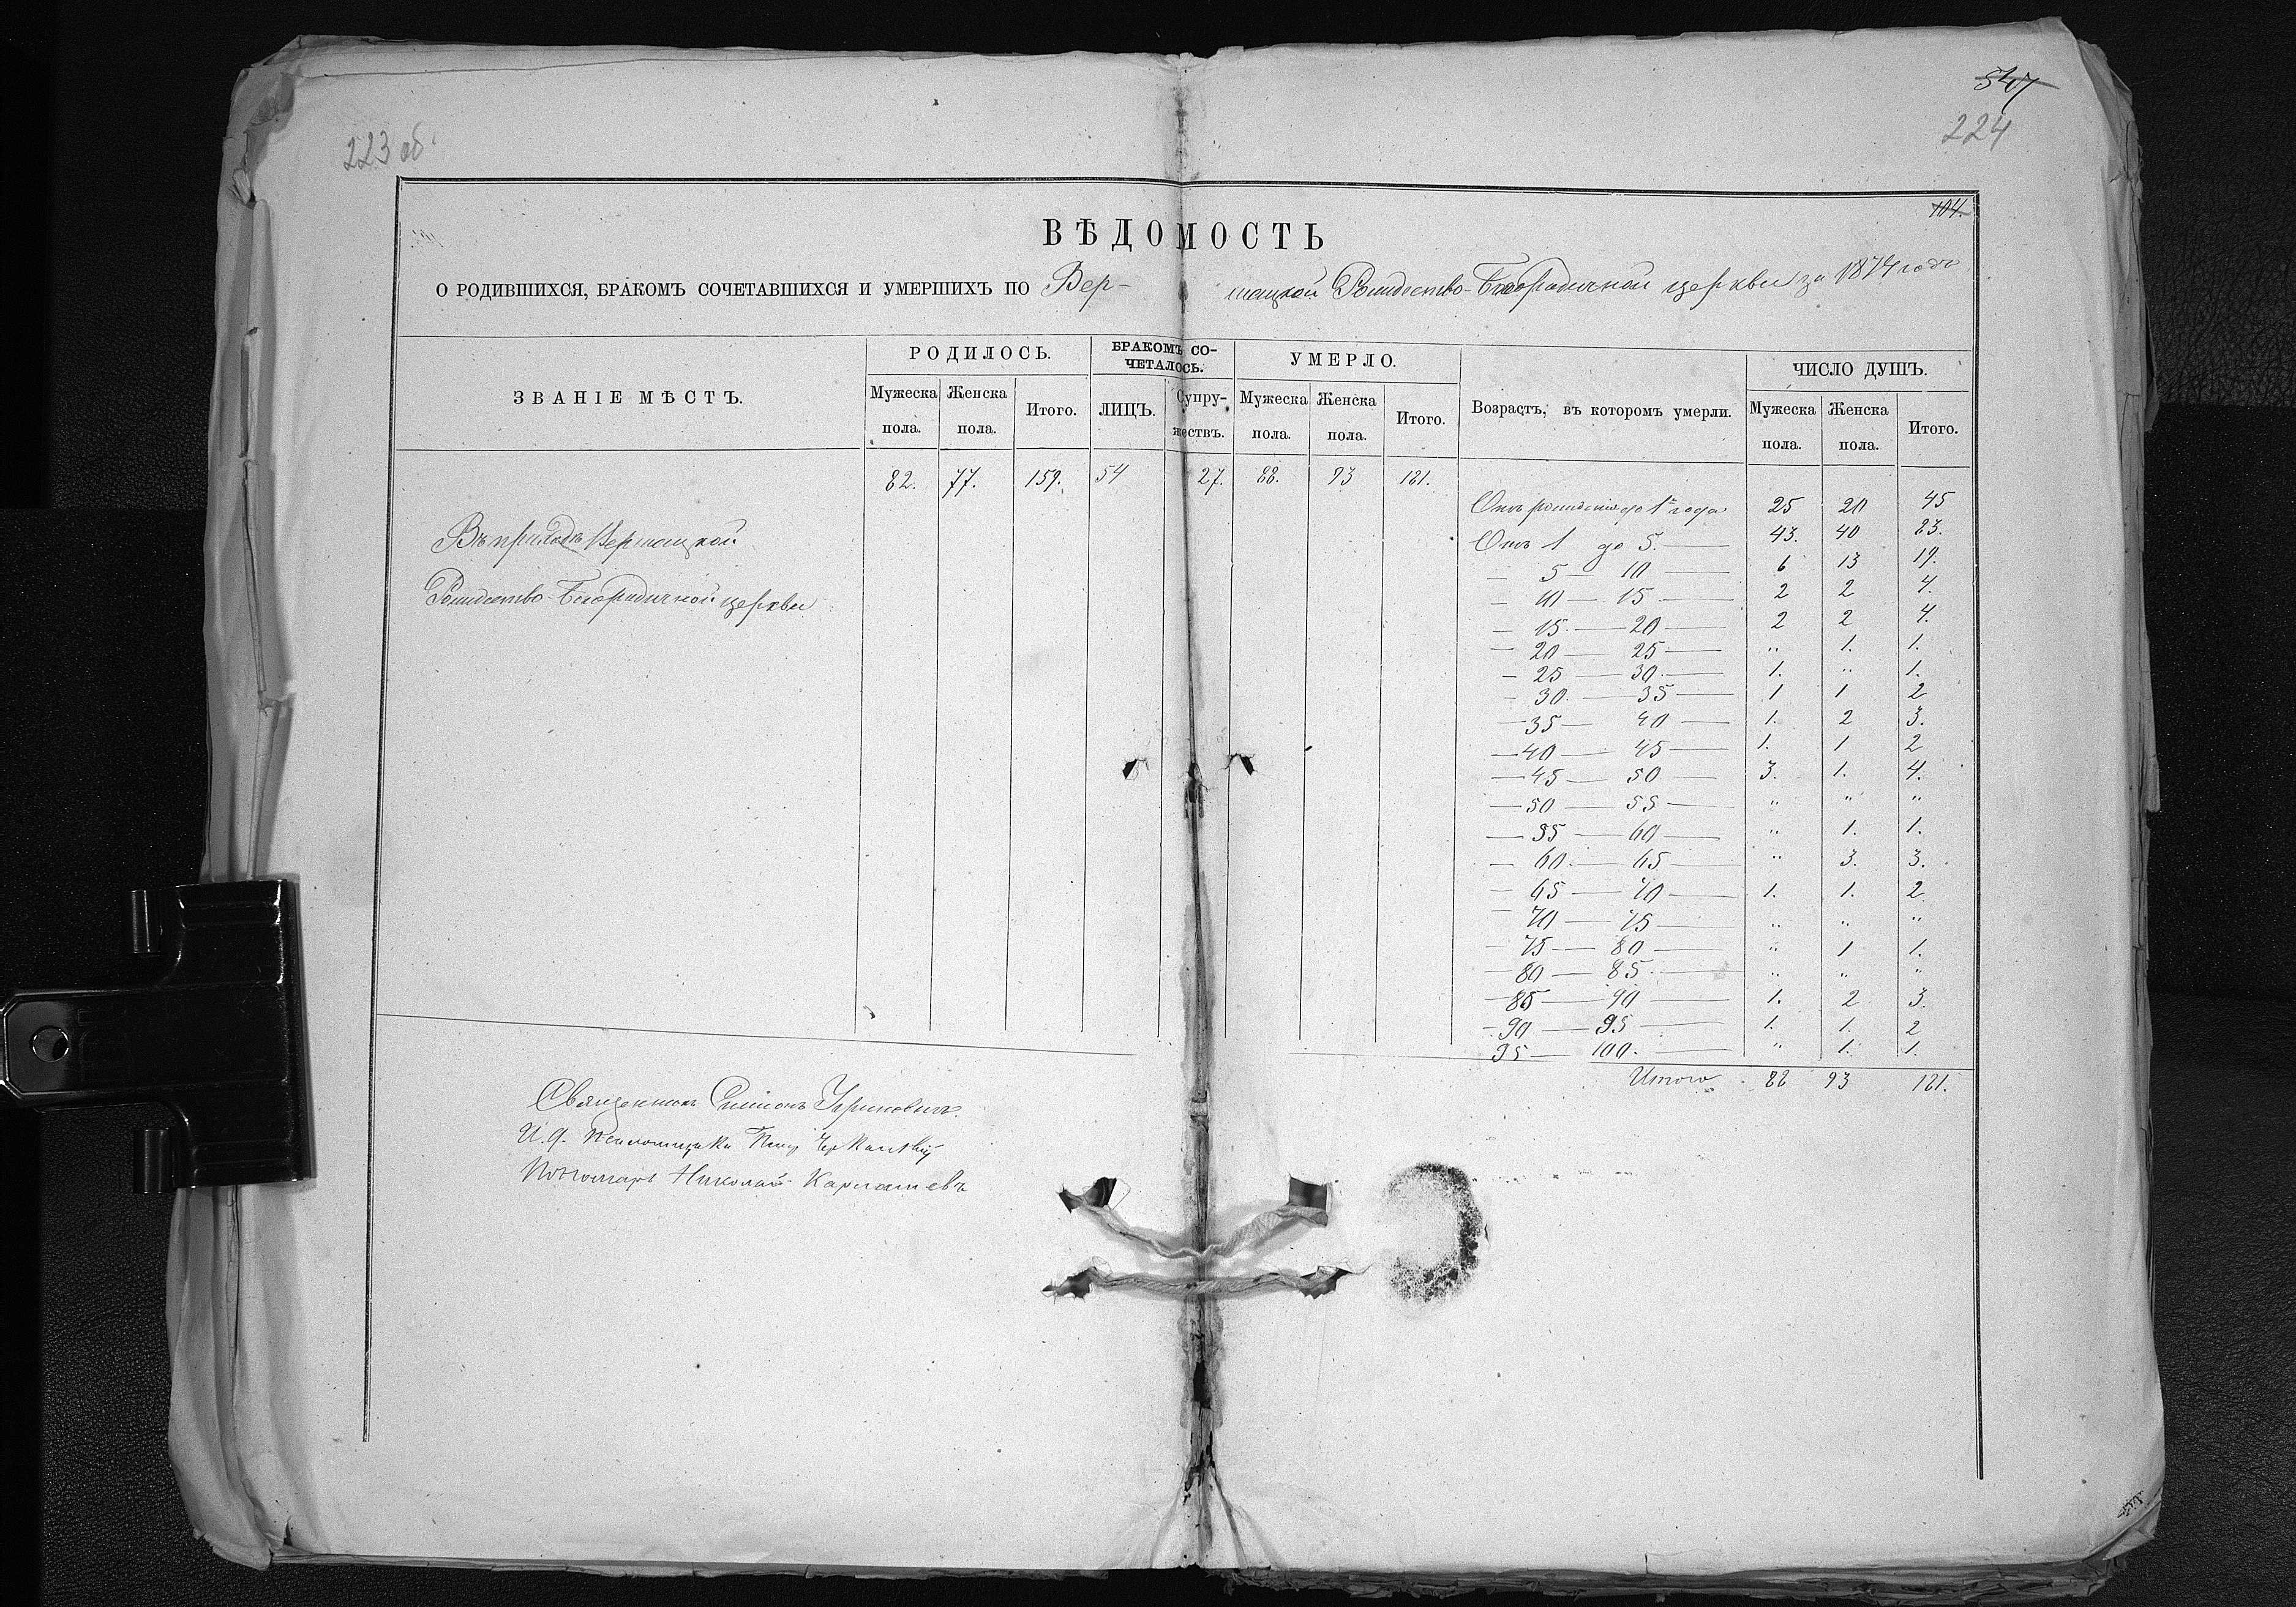 547
223 об.
224
104.
ВѢДОМОСТЬ
О РОДИВШИХСЯ, БРАКОМЪ СОЧЕТАВШИХСЯ И УМЕРШИХЪ ПО Вер-шацкой Рождество-Богородичной церкви за 1874 годъ
ЗВАНІЕ МѢСТЪ. РОДИЛОСЬ. БРАКОМЪ СО-ЧЕТАЛОСЬ. УМЕРЛО. Возрастъ, въ которомъ умерли. ЧИСЛО ДУШЪ.
Мужеска пола. Женска пола. Итого. ЛИЦЪ. Супру-жествъ. Мужеска пола. Женска пола. Итого. Мужеска пола. Женска пола. Итого.
82. 77. 159. 54 27. 88. 93 181.
Въ приходѣ Вершацкой
Рождество-Богородичной церкви
Отъ рожденія до 1го года 25 20 45
Отъ 1 до 5. — 43. 40 83.
— 5 — 10 — 6 13 19.
— 10 — 15 — 2 2 4.
— 15. — 20 — 2 2 4.
— 20 — 25 — " 1. 1.
— 25 — 30. — 1. " 1.
— 30. — 35 — 1 1 2
— 35 — 40 — 1. 2 3.
— 40 — 45 — 1. 1 2
— 45 — 50 — 3. 1. 4.
— 50 — 55 — " " "
— 55 — 60 — " 1. 1.
— 60. — 65 — " 3. 3.
— 65 — 70 — 1. 1. 2.
— 70 — 75 — " " "
— 75 — 80 — " 1 1.
— 80 — 85. — " " "
— 85 — 90 — 1. 2 3.
— 90 — 95 — 1. 1. 2
95 — 100. — " 1. 1.
Итого 88 93 181.
Священникъ Симеонъ
И. д. псаломщика
Пономарь Николай Карпашевъ